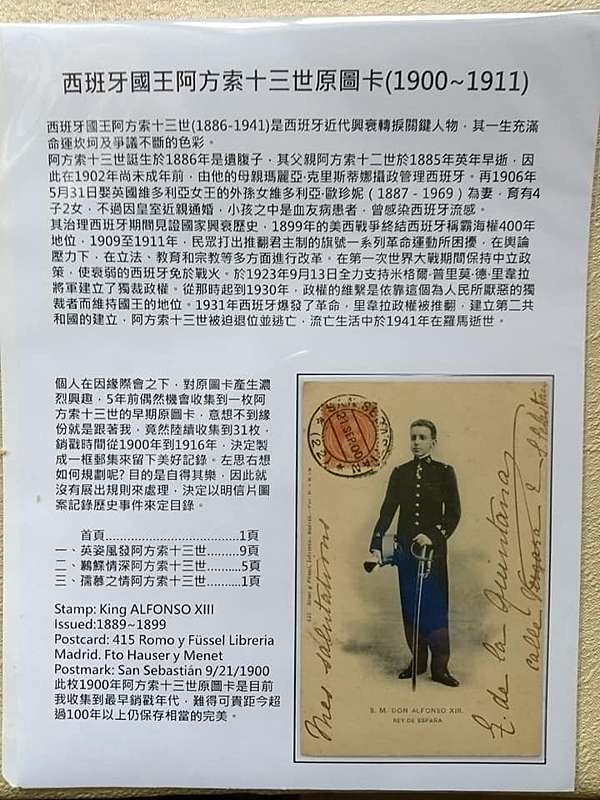 西班牙國王阿方索十三世原圖卡(1900~1911)
西班牙國王阿方索十三世(1886-1941)是西班牙近代興衰轉捩關鍵人物，其一生充滿
命運坎坷及爭議不斷的色彩。
阿方索十三世誕生於1886年是遺腹子，其父親阿方索十二世於1885年英年早逝，因
此在1902年尚未成年前，由他的母親瑪麗亞·克里斯蒂娜攝政管理西班牙。再1906年
5月31日娶英國維多利亞女王的外孫女維多利亞·歐珍妮（1887 - 1969）為妻，育有4
子2女，不過因皇室近親通婚，小孩之中是血友病患者，曾感染西班牙流感。
其治理西班牙期間見證國家興衰歷史，1899年的美西戰爭終結西班牙稱霸海權400年
地位，1909至1911年，民眾打出推翻君主制的旗號一系列革命運動所困擾，在輿論
壓力下，在立法、教育和宗教等多方面進行改革。在第一次世界大戰期間保持中立政
策，使衰弱的西班牙免於戰火。於1923年9月13日全力支持米格爾·普里莫·德·里韋拉
將軍建立了獨裁政權。從那時起到1930年，政權的維繫是依靠這個為人民所厭惡的獨
裁者而維持國王的地位。1931年西班牙爆發了革命，里韋拉政權被推翻，建立第二共
和國的建立，阿方索十三世被迫退位並逃亡，流亡生活中於1941年在羅馬逝世。
個人在因緣際會之下，對原圖卡產生濃
烈興趣，5年前偶然機會收集到一枚阿方
索十三世的早期原圖卡，意想不到緣
份就是跟著我，竟然陸續收集到31枚，
銷戳時間從1900年到1916年，決定製
成一框郵集來留下美好記錄。左思右想
如何規劃呢？目的是自得其樂，因此就
沒有展出規則來處理，決定以明信片圖
案記錄歷史事件來定目錄。
首頁......................................1頁
一、英姿風發阿方索十三世.........9頁
二、鶼鰈情深阿方索十三世..........5頁
三、孺慕之情阿方索十三世..........1頁
Stamp: King ALFONSO XIII
Issued:1889~1899
Postcard: 415 Romo y Füssel Libreria
Madrid. Fto Hauser y Menet
Postmark: San Sebastián 9/21/1900
此枚1900年阿方索十三世原圖卡是目前
我收集到最早銷戳年代，難得可貴距今超
過100年以上仍保存相當的完美。
SAN SEBASTIAN
21 SEP 00
Mes salutations
E. de la Quintana
S. M. DON ALFONSO XIII.
REY DE ESPAÑA